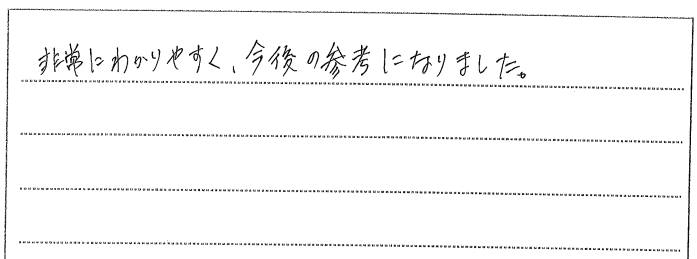 非常にわかりやすく、今後の参考になりました。